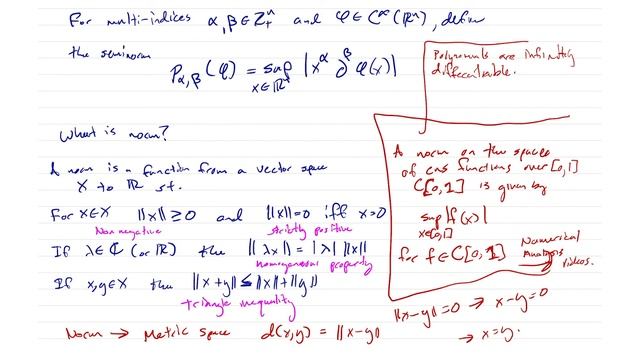 For multi-indices α, β ∈ Z₊ⁿ and φ ∈ C^∞(ℝⁿ), define
the seminorm
P_{α,β}(φ) = sup_{x∈ℝⁿ} |x^α ∂^β φ(x)|
Polynomials are infinitely
differentiable.
What is norm?
A norm is a function from a vector space
X to ℝ s.t.
For x∈X ||x|| ≥ 0 and ||x||=0 iff x=0
Non negative strictly positive
If λ∈ℂ (or ℝ) the ||λx|| = |λ| ||x||
homogeneous property
If x,y∈X the ||x+y|| ≤ ||x||+||y||
triangle inequality
Norm → Metric space d(x,y) = ||x-y||
A norm on the spaces
of cns functions over [0,1]
C[0,1] is given by
sup_{x∈[0,1]} |f(x)|
for f∈C[0,1]
Numerical
Analysis
videos.
||x-y||=0 → x-y=0
→ x=y.